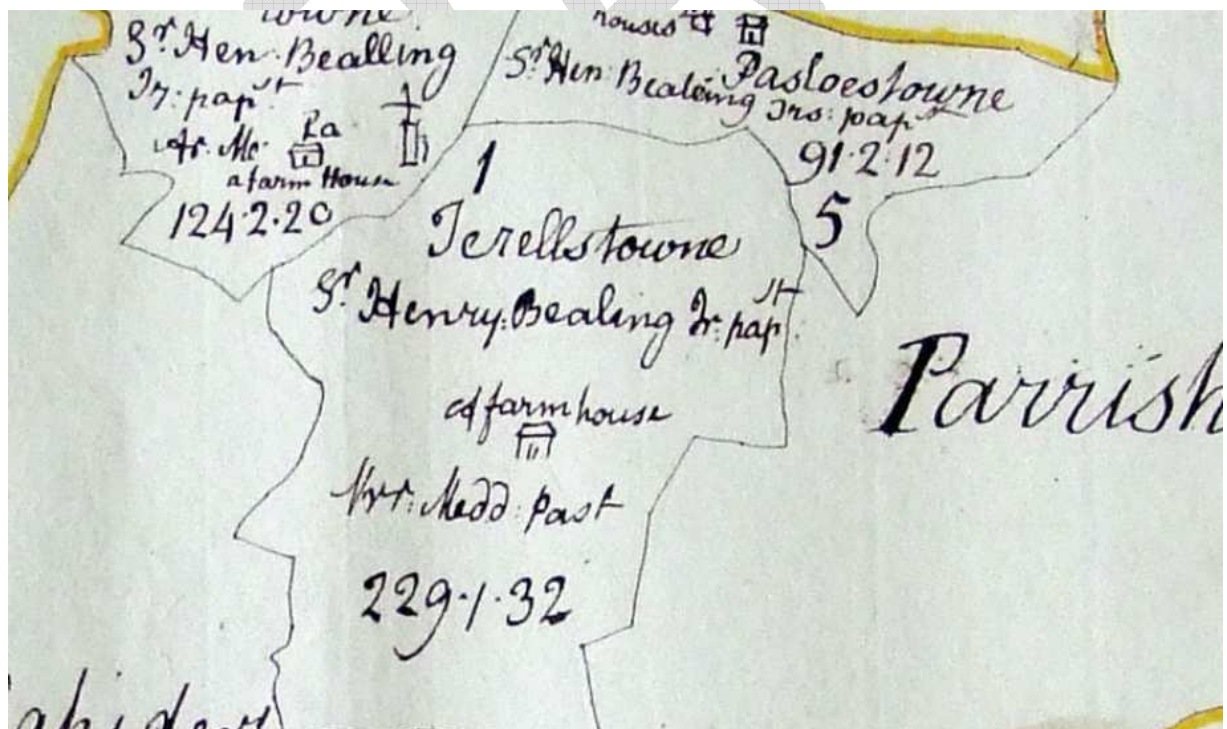 towne
Sr Hen: Bealling
Ir: papst
Ar: Me: Pa
a farm House
124·2·20
houses
Pasloestowne
Sr Hen: Bealeing Irs: papst
91·2·12
5
1
Terellstowne
Sr Henry: Bealing Ir: papst
A farm house
Arr: Medd: Past
229·1·32
Parrish